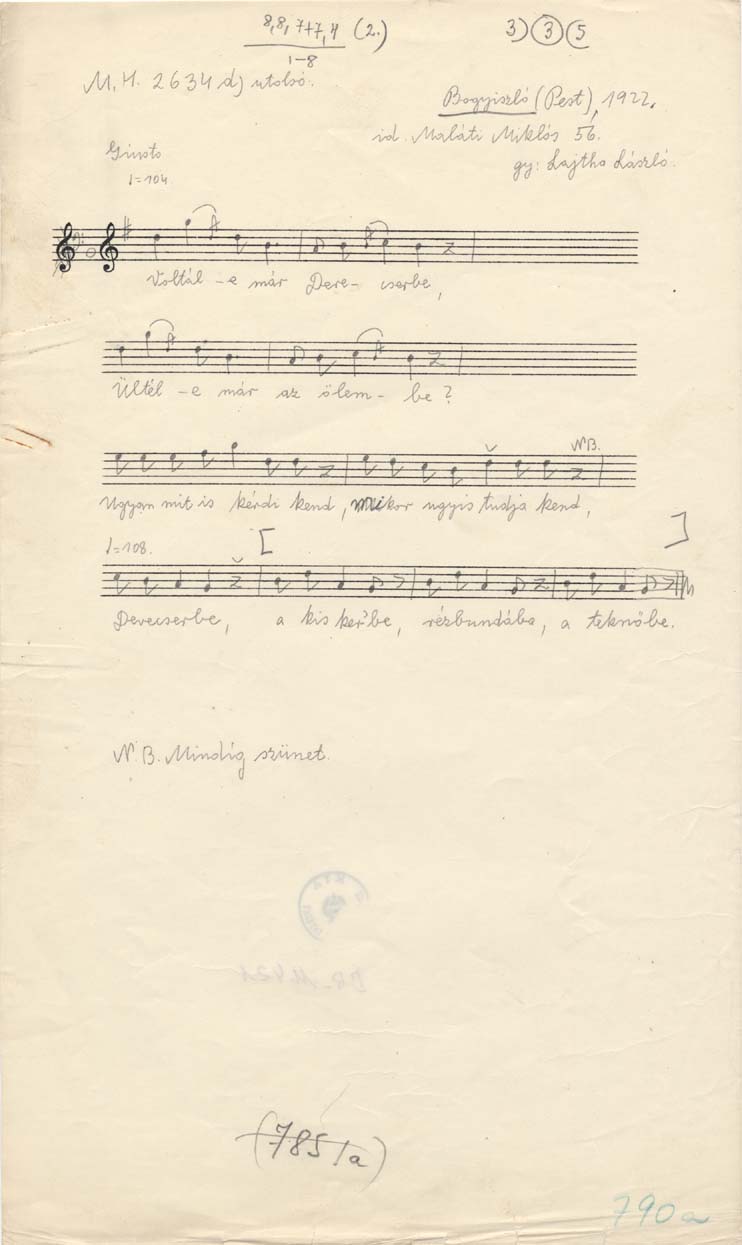 8,8, 7+7, 4 (2.)
1-8
3) 3 5
M. H. 2634 d) utolsó.
Bogyiszló (Pest), 1922.
id. Maláti Miklós 56.
gy: Lajtha László.
Giusto
♩=104
Voltál -e már Deve- cserbe,
Ültél -e már az ölem- be?
N.B.
Ugyan mit is kérdi kend, mikor ugyis tudja kend,
♩=108.
Devecserbe, a kis kertbe, rézbundába, a teknőbe.
N.B. Mindig szünet.
(785/a)
790a